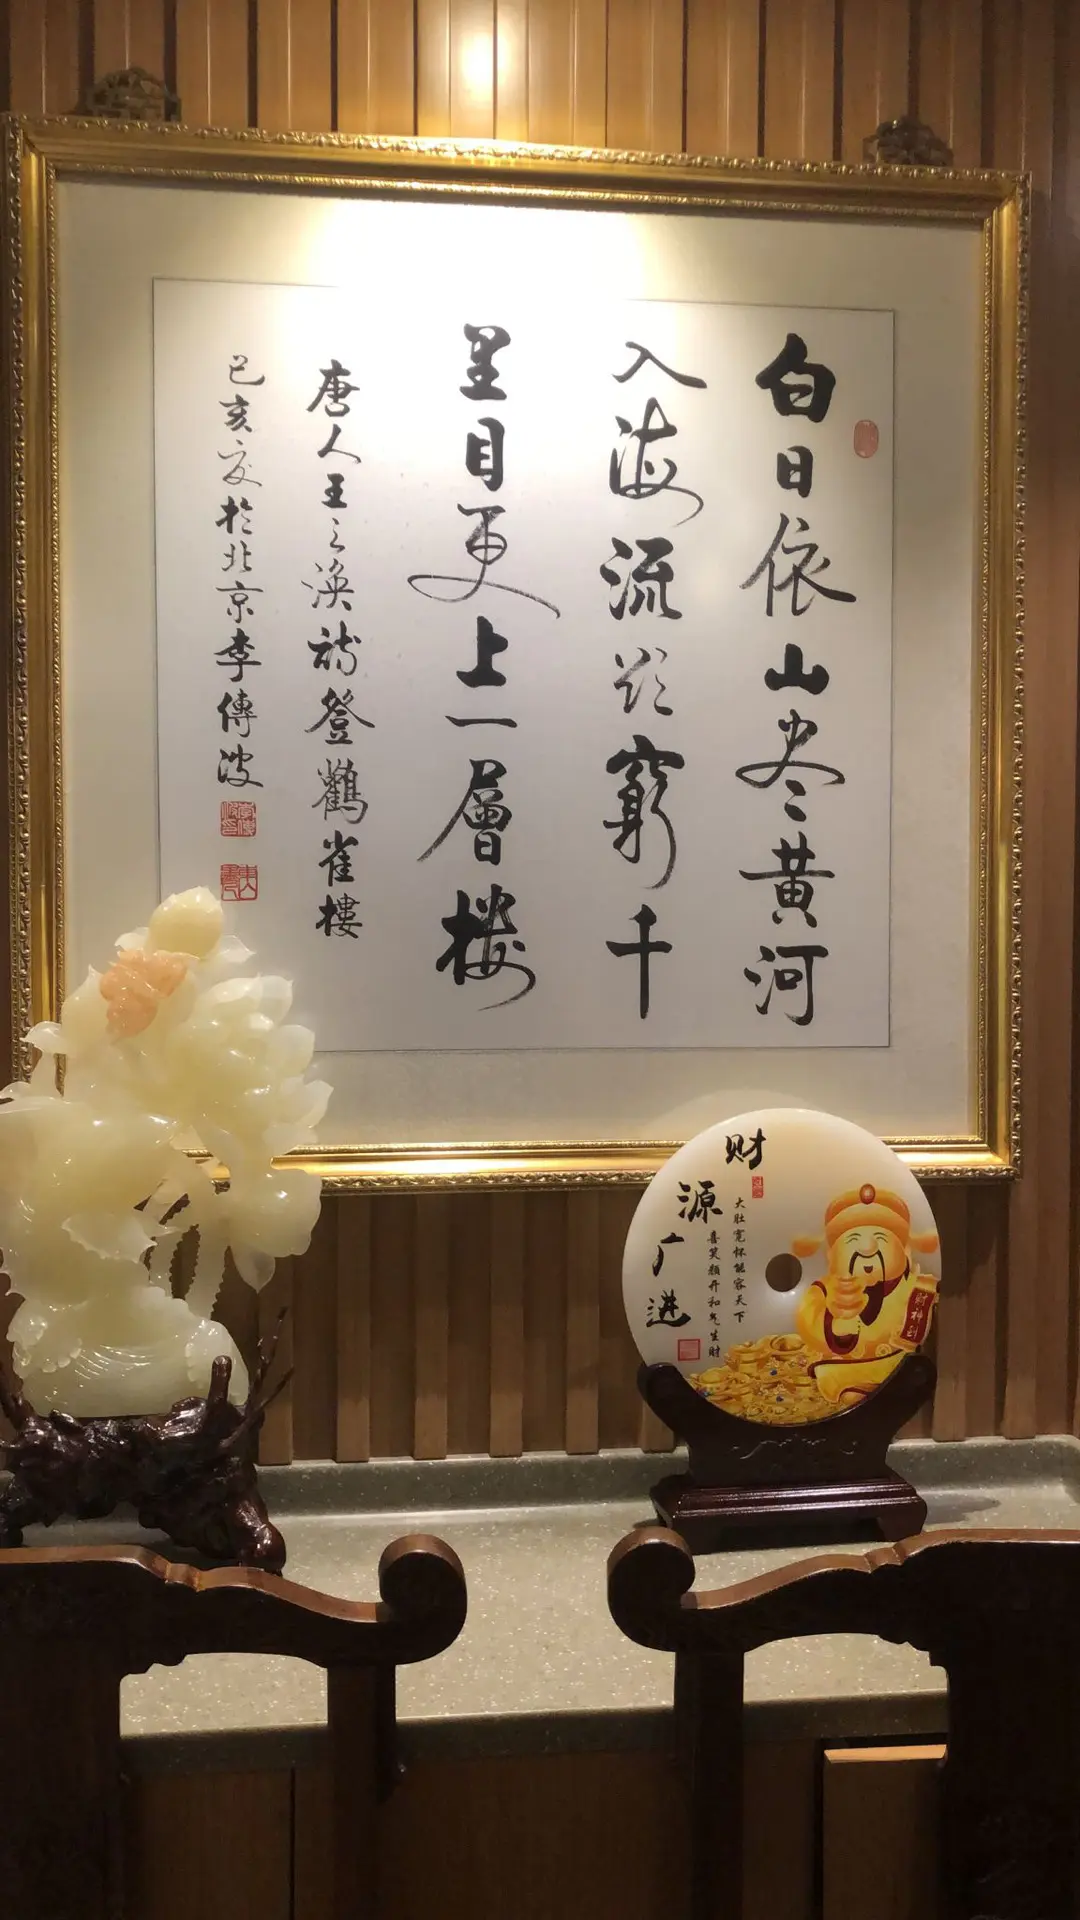 白日依山尽黄河
入海流欲窮千
里目更上一層楼
唐人王之渙詩登鸛雀樓
己亥夏於北京李傳波
财源广进
大肚宽怀能容天下
喜笑颜开和气生财
财神到